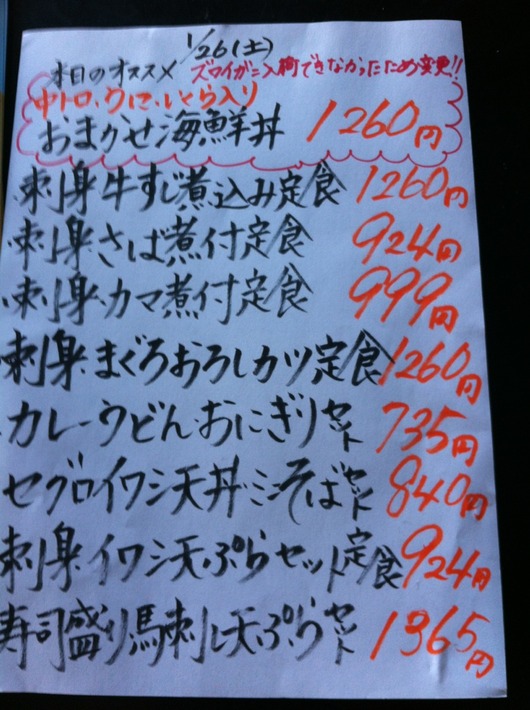 1/26(土)
本日のオススメ ズワイガニ入荷できなかったため変更!!
中トロ、うに、いくら入り
おまかせ海鮮丼 1260円
刺身牛すじ煮込み定食 1260円
刺身さば煮付定食 924円
刺身カマ煮付定食 999円
刺身まぐろおろしカツ定食 1260円
カレーうどんおにぎりセット 735円
セグロイワシ天丼ミニそばセット 840円
刺身イワシ天ぷらセット定食 924円
寿司盛り馬刺し天ぷらセット 1365円